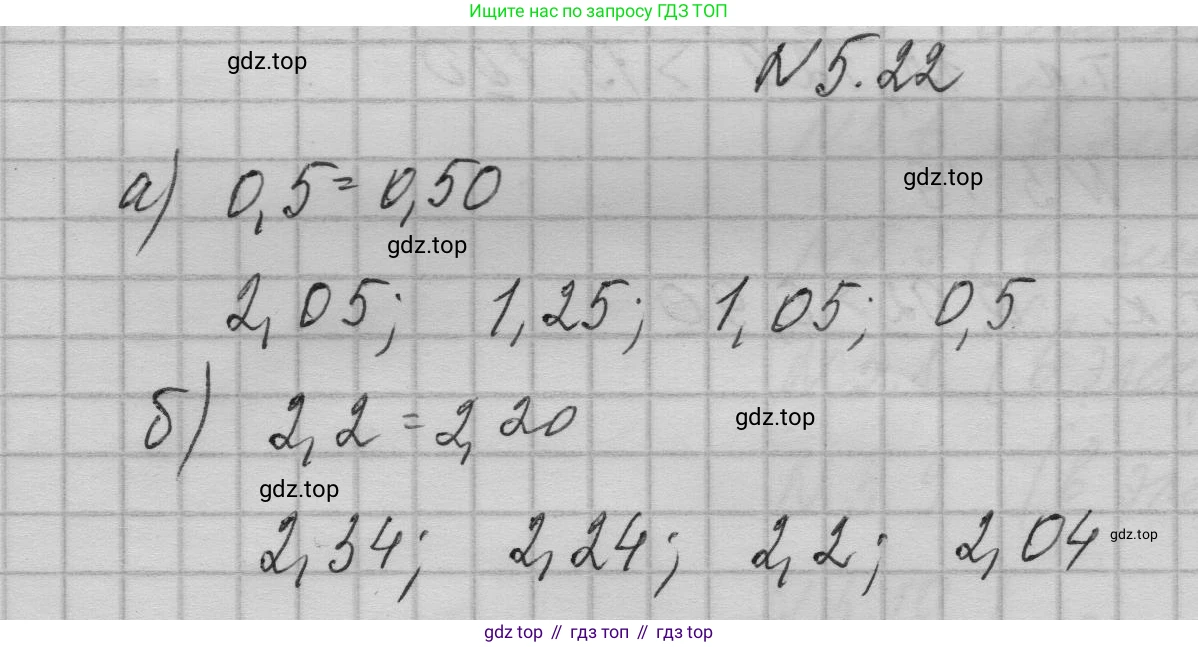 Ищите нас по запросу ГДЗ ТОП
gdz.top
N 5.22
а) 0,5 = 0,50
gdz.top
gdz.top
2,05; 1,25; 1,05; 0,5
б) 2,2 = 2,20
gdz.top
gdz.top
2,34; 2,24; 2,2; 2,04
gdz.top
gdz top // гдз топ // gdz top